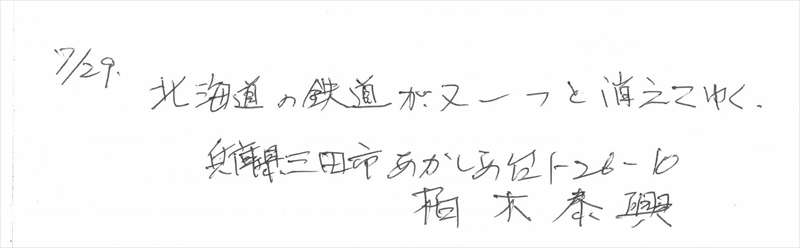 7/29.
北海道の鉄道が又一つと消えてゆく.
兵庫県三田市あかしあ台1-26-10
柏木泰興